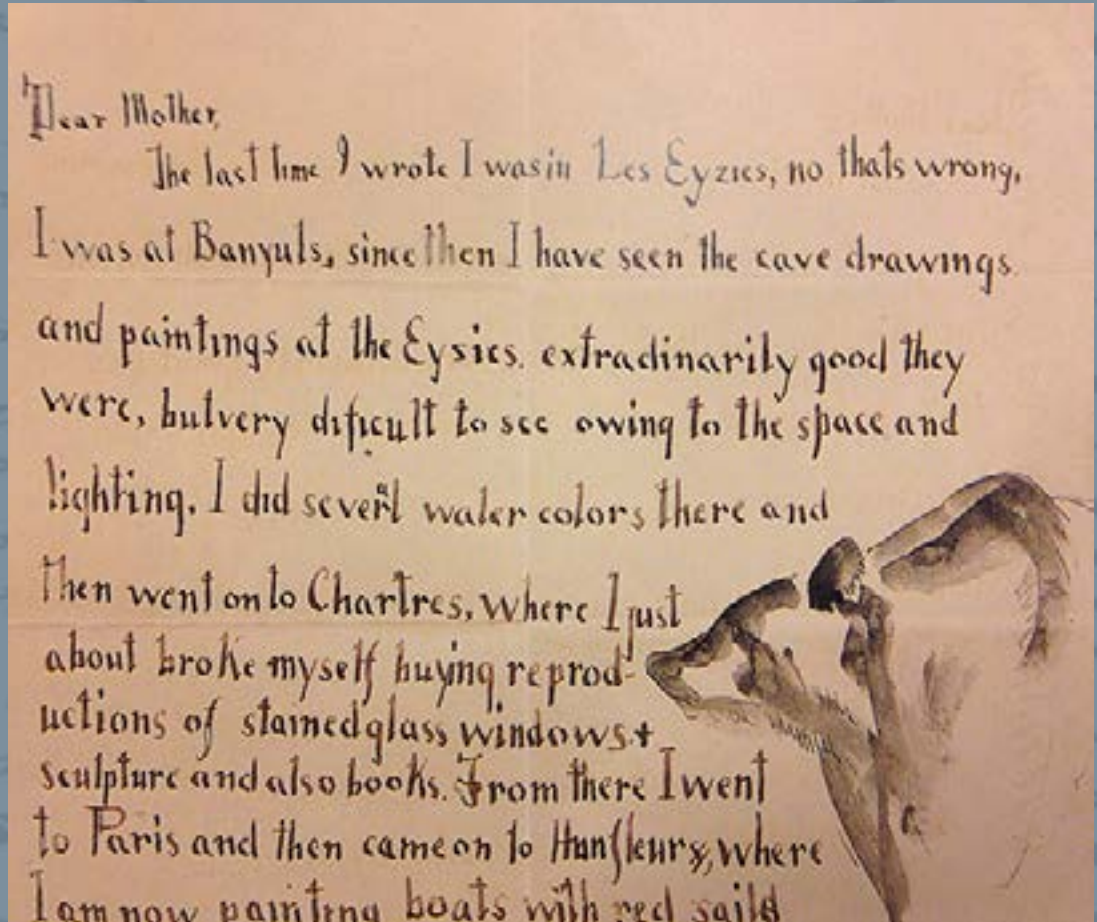 Dear Mother,
The last time I wrote I was in Les Eyzies, no thats wrong,
I was at Banyuls, since then I have seen the cave drawings
and paintings at the Eysies. extradinarily good they
were, but very dificult to see owing to the space and
lighting. I did several water colors there and
then went on to Chartres, where I just
about broke myself buying reprod-
uctions of stained glass windows +
sculpture and also books. From there I went
to Paris and then came on to where
I am now painting boats with red sails